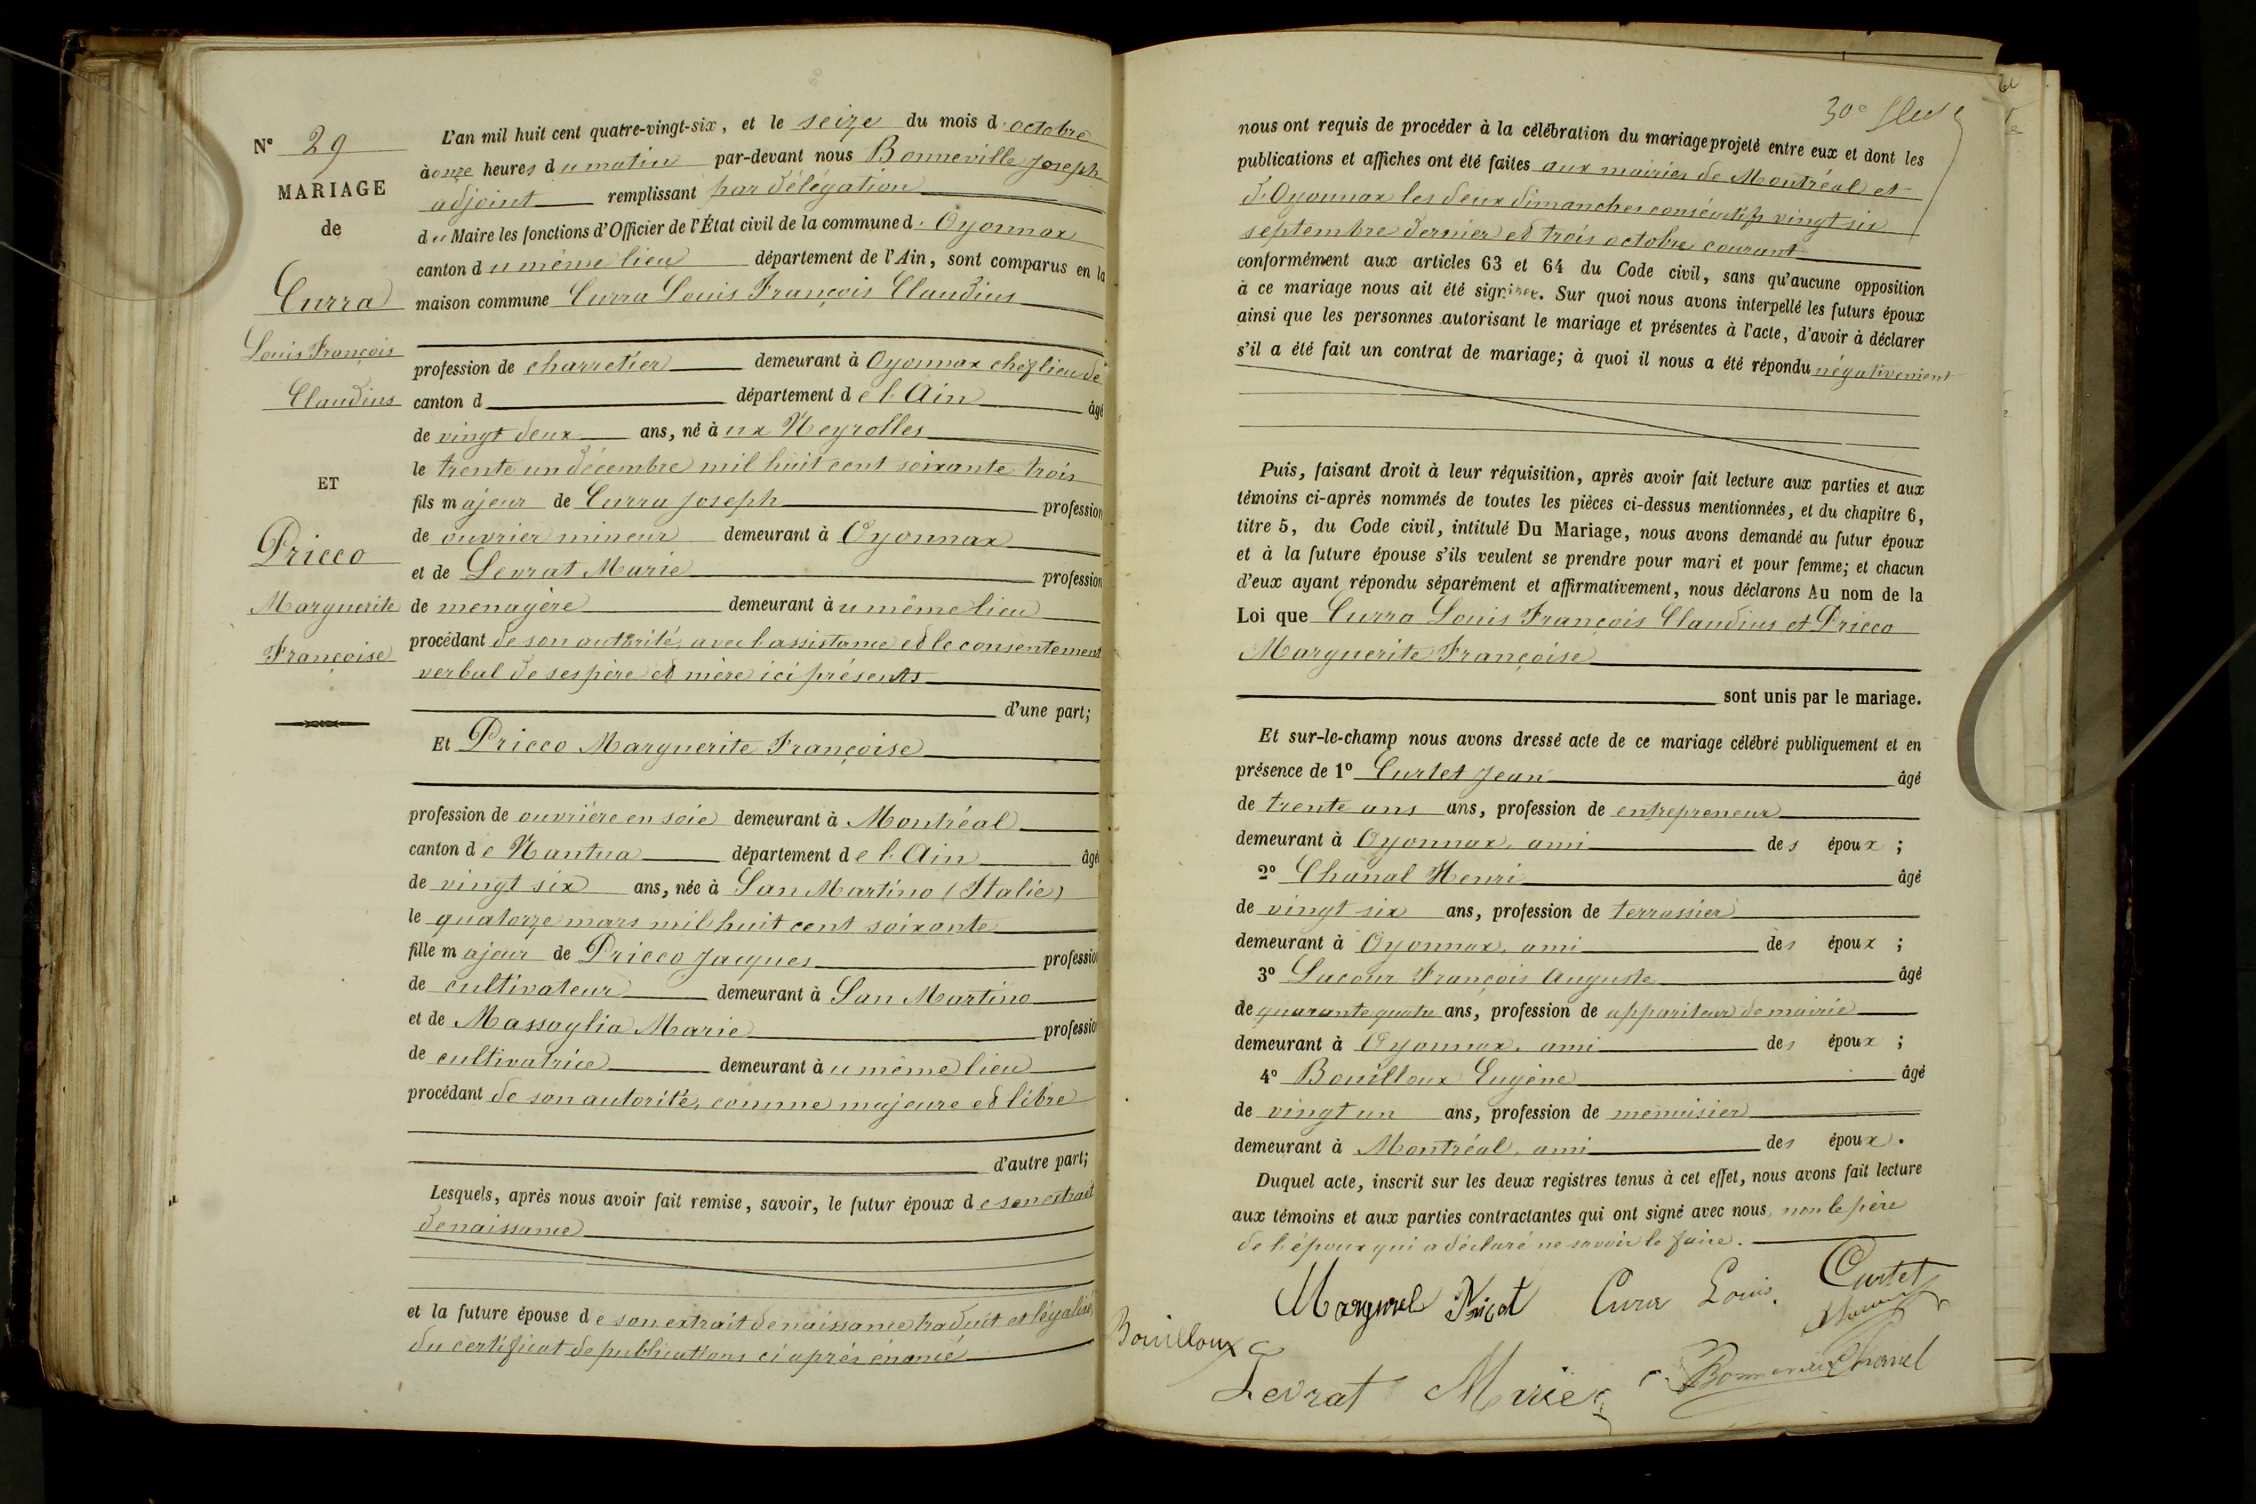 N° 29
MARIAGE
de
Curra
Louis François
Claudius
ET
Pricco
Marguerite
Françoise
L'an mil huit cent quatre-vingt-six, et le seize du mois d'octobre
à onze heures du matin par-devant nous Bonneville Joseph
adjoint remplissant par délégation
du Maire les fonctions d'Officier de l'État civil de la commune d'Oyonnax
canton du même lieu département de l'Ain, sont comparus en la
maison commune Curra Louis François Claudius
profession de charretier demeurant à Oyonnax chef lieu de
canton d département de l'Ain âgé
de vingt deux ans, né aux Neyrolles
le trente un décembre mil huit cent soixante trois
fils majeur de Curra Joseph profession
de ouvrier mineur demeurant à Oyonnax
et de Levrat Marie profession
de menagère demeurant au même lieu
procédant de son autorité, avec l'assistance et le consentement
verbal de ses père et mère ici présents
d'une part;
Et Pricco Marguerite Françoise
profession de ouvrière en soie demeurant à Montréal
canton de Nantua département de l'Ain âgé
de vingt six ans, née à San Martino (Italie)
le quatorze mars mil huit cent soixante
fille majeur de Pricco Jacques profession
de cultivateur demeurant à San Martino
et de Massaglia Marie profession
de cultivatrice demeurant au même lieu
procédant de son autorité, comme majeure et libre
d'autre part;
Lesquels, après nous avoir fait remise, savoir, le futur époux de son extrait
de naissance
et la future épouse de son extrait de naissance traduit et légalisé,
du certificat de publications ci après énoncé
30e
nous ont requis de procéder à la célébration du mariage projeté entre eux et dont les
publications et affiches ont été faites aux mairies de Montréal et
d'Oyonnax les deux dimanches consécutifs vingt six
septembre dernier et trois octobre courant
conformément aux articles 63 et 64 du Code civil, sans qu'aucune opposition
à ce mariage nous ait été signifiée. Sur quoi nous avons interpellé les futurs époux
ainsi que les personnes autorisant le mariage et présentes à l'acte, d'avoir à déclarer
s'il a été fait un contrat de mariage; à quoi il nous a été répondu négativement
Puis, faisant droit à leur réquisition, après avoir fait lecture aux parties et aux
témoins ci-après nommés de toutes les pièces ci-dessus mentionnées, et du chapitre 6,
titre 5, du Code civil, intitulé Du Mariage, nous avons demandé au futur époux
et à la future épouse s'ils veulent se prendre pour mari et pour femme; et chacun
d'eux ayant répondu séparément et affirmativement, nous déclarons Au nom de la
Loi que Curra Louis François Claudius et Pricco
Marguerite Françoise
sont unis par le mariage.
Et sur-le-champ nous avons dressé acte de ce mariage célébré publiquement et en
présence de 1° Curtet Jean âgé
de trente ans ans, profession de entrepreneur
demeurant à Oyonnax, ami des époux ;
2° Chanal Henri âgé
de vingt six ans, profession de terrassier
demeurant à Oyonnax, ami des époux ;
3° Lacour François Auguste âgé
de quarante quatre ans, profession de appariteur de mairie
demeurant à Oyonnax, ami des époux ;
4° Bouilloux Eugène âgé
de vingt un ans, profession de menuisier
demeurant à Montréal, ami des époux.
Duquel acte, inscrit sur les deux registres tenus à cet effet, nous avons fait lecture
aux témoins et aux parties contractantes qui ont signé avec nous, non le père
de l'époux qui a déclaré ne savoir le faire.
Curra Louis Curtet
Bouilloux
Levrat Marie Chanal